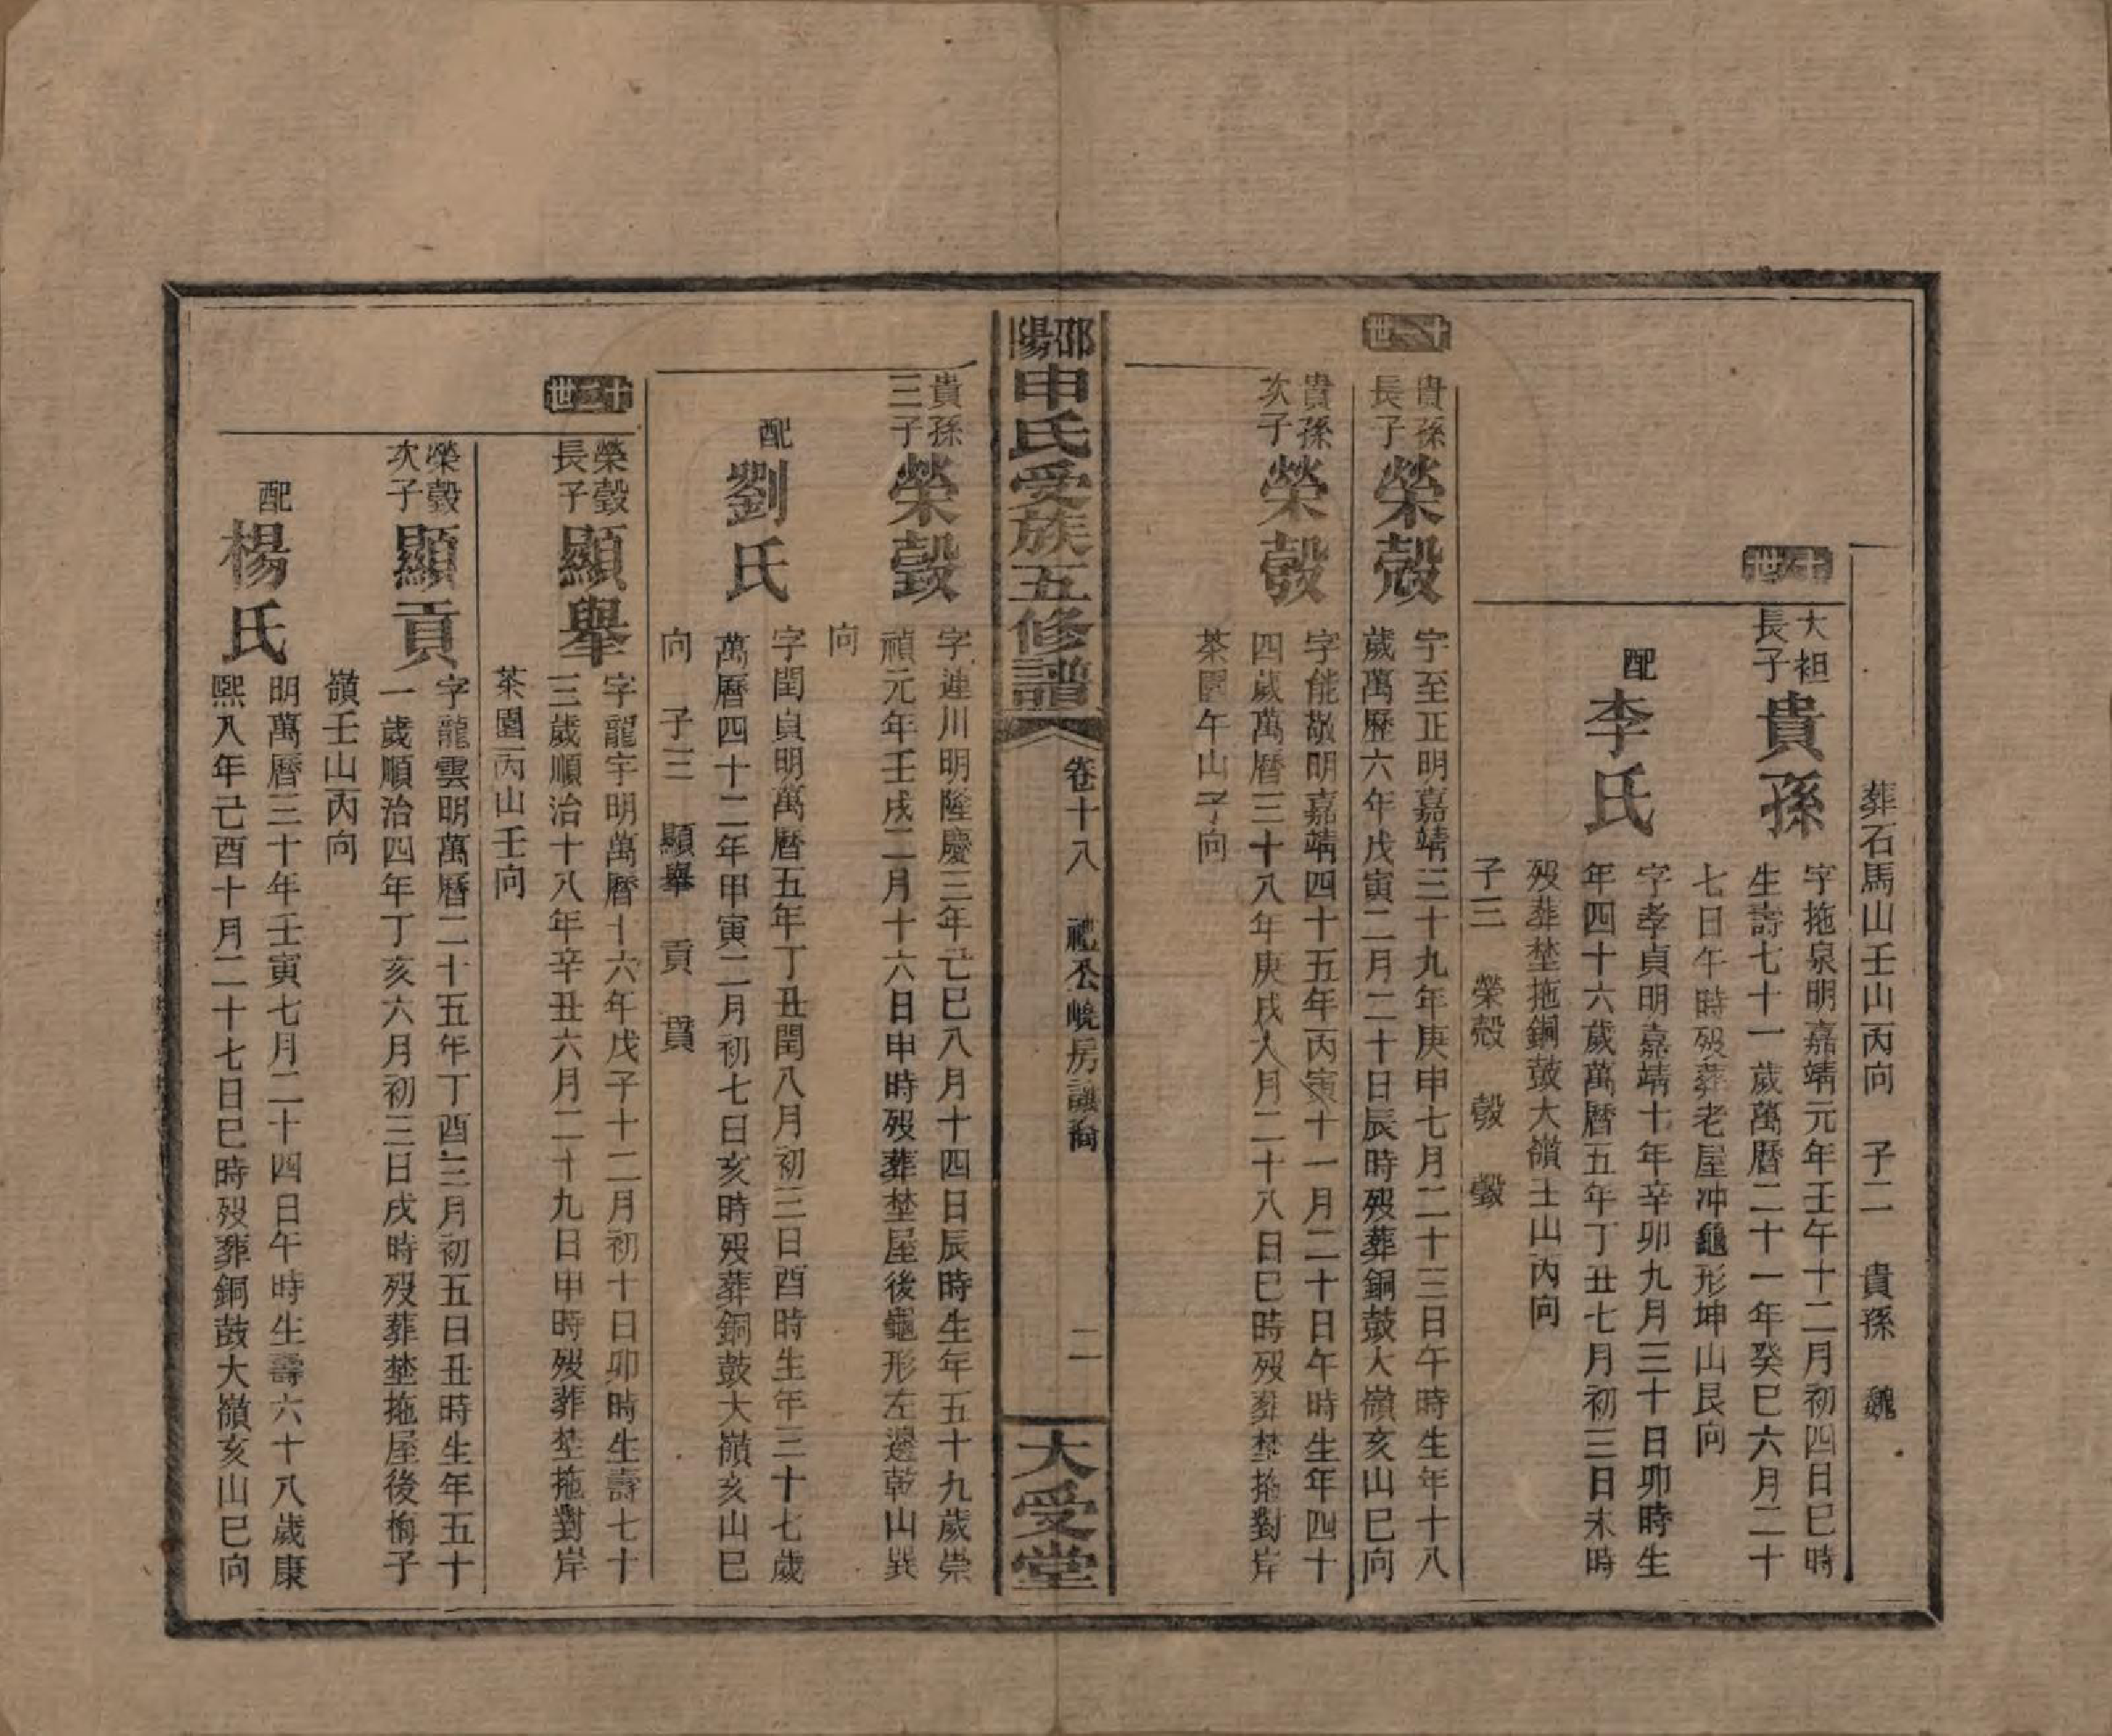 葬石馬山壬山丙向　子二　貴孫　魏
十世
大祖
長子
貴孫
字拖泉明嘉靖元年壬午十二月初四日巳時
生壽七十一歲萬曆二十一年癸巳六月二十
七日午時歿葬老屋冲龜形坤山艮向
配
李氏
字孝貞明嘉靖十年辛卯九月三十日卯時生
年四十六歲萬曆五年丁丑七月初三日未時
歿葬埜拖銅鼓大嶺壬山丙向
子三　榮殻　㲄　轂
十一世
貴孫
長子
榮殻
字至正明嘉靖三十九年庚申七月二十三日午時生年十八
歲萬歷六年戊寅二月二十日辰時歿葬銅鼓大嶺亥山巳向
貴孫
次子
榮㲄
字能敬明嘉靖四十五年丙寅十一月二十日午時生年四十
四歲萬曆三十八年庚戌八月二十八日巳時歿葬埜拖對岸
茶園午山子向
邵陽申氏受族五修譜
卷十八　禮公嶢房讓裔
二
大受堂
貴孫
三子
榮轂
字連川明隆慶三年己巳八月十四日辰時生年五十九歲崇
禎元年壬戌二月十六日申時歿葬埜屋後龜形左邊乾山巽
向
配
劉氏
字閏貞明萬曆五年丁丑閏八月初三日酉時生年三十七歲
萬曆四十二年甲寅二月初七日亥時歿葬銅鼓大嶺亥山巳
向　子三　顯舉　貢　貫
十二世
榮轂
長子
顯舉
字龍宇明萬曆十六年戊子十二月初十日卯時生壽七十
三歲順治十八年辛丑六月二十九日申時歿葬埜拖對岸
茶園丙山壬向
榮轂
次子
顯貢
字龍雲明萬曆二十五年丁酉三月初五日丑時生年五十
一歲順治四年丁亥六月初三日戌時歿葬埜拖屋後梅子
嶺壬山丙向
配
楊氏
明萬曆三十年壬寅七月二十四日午時生壽六十八歲康
熙八年己酉十月二十七日巳時歿葬銅鼓大嶺亥山巳向